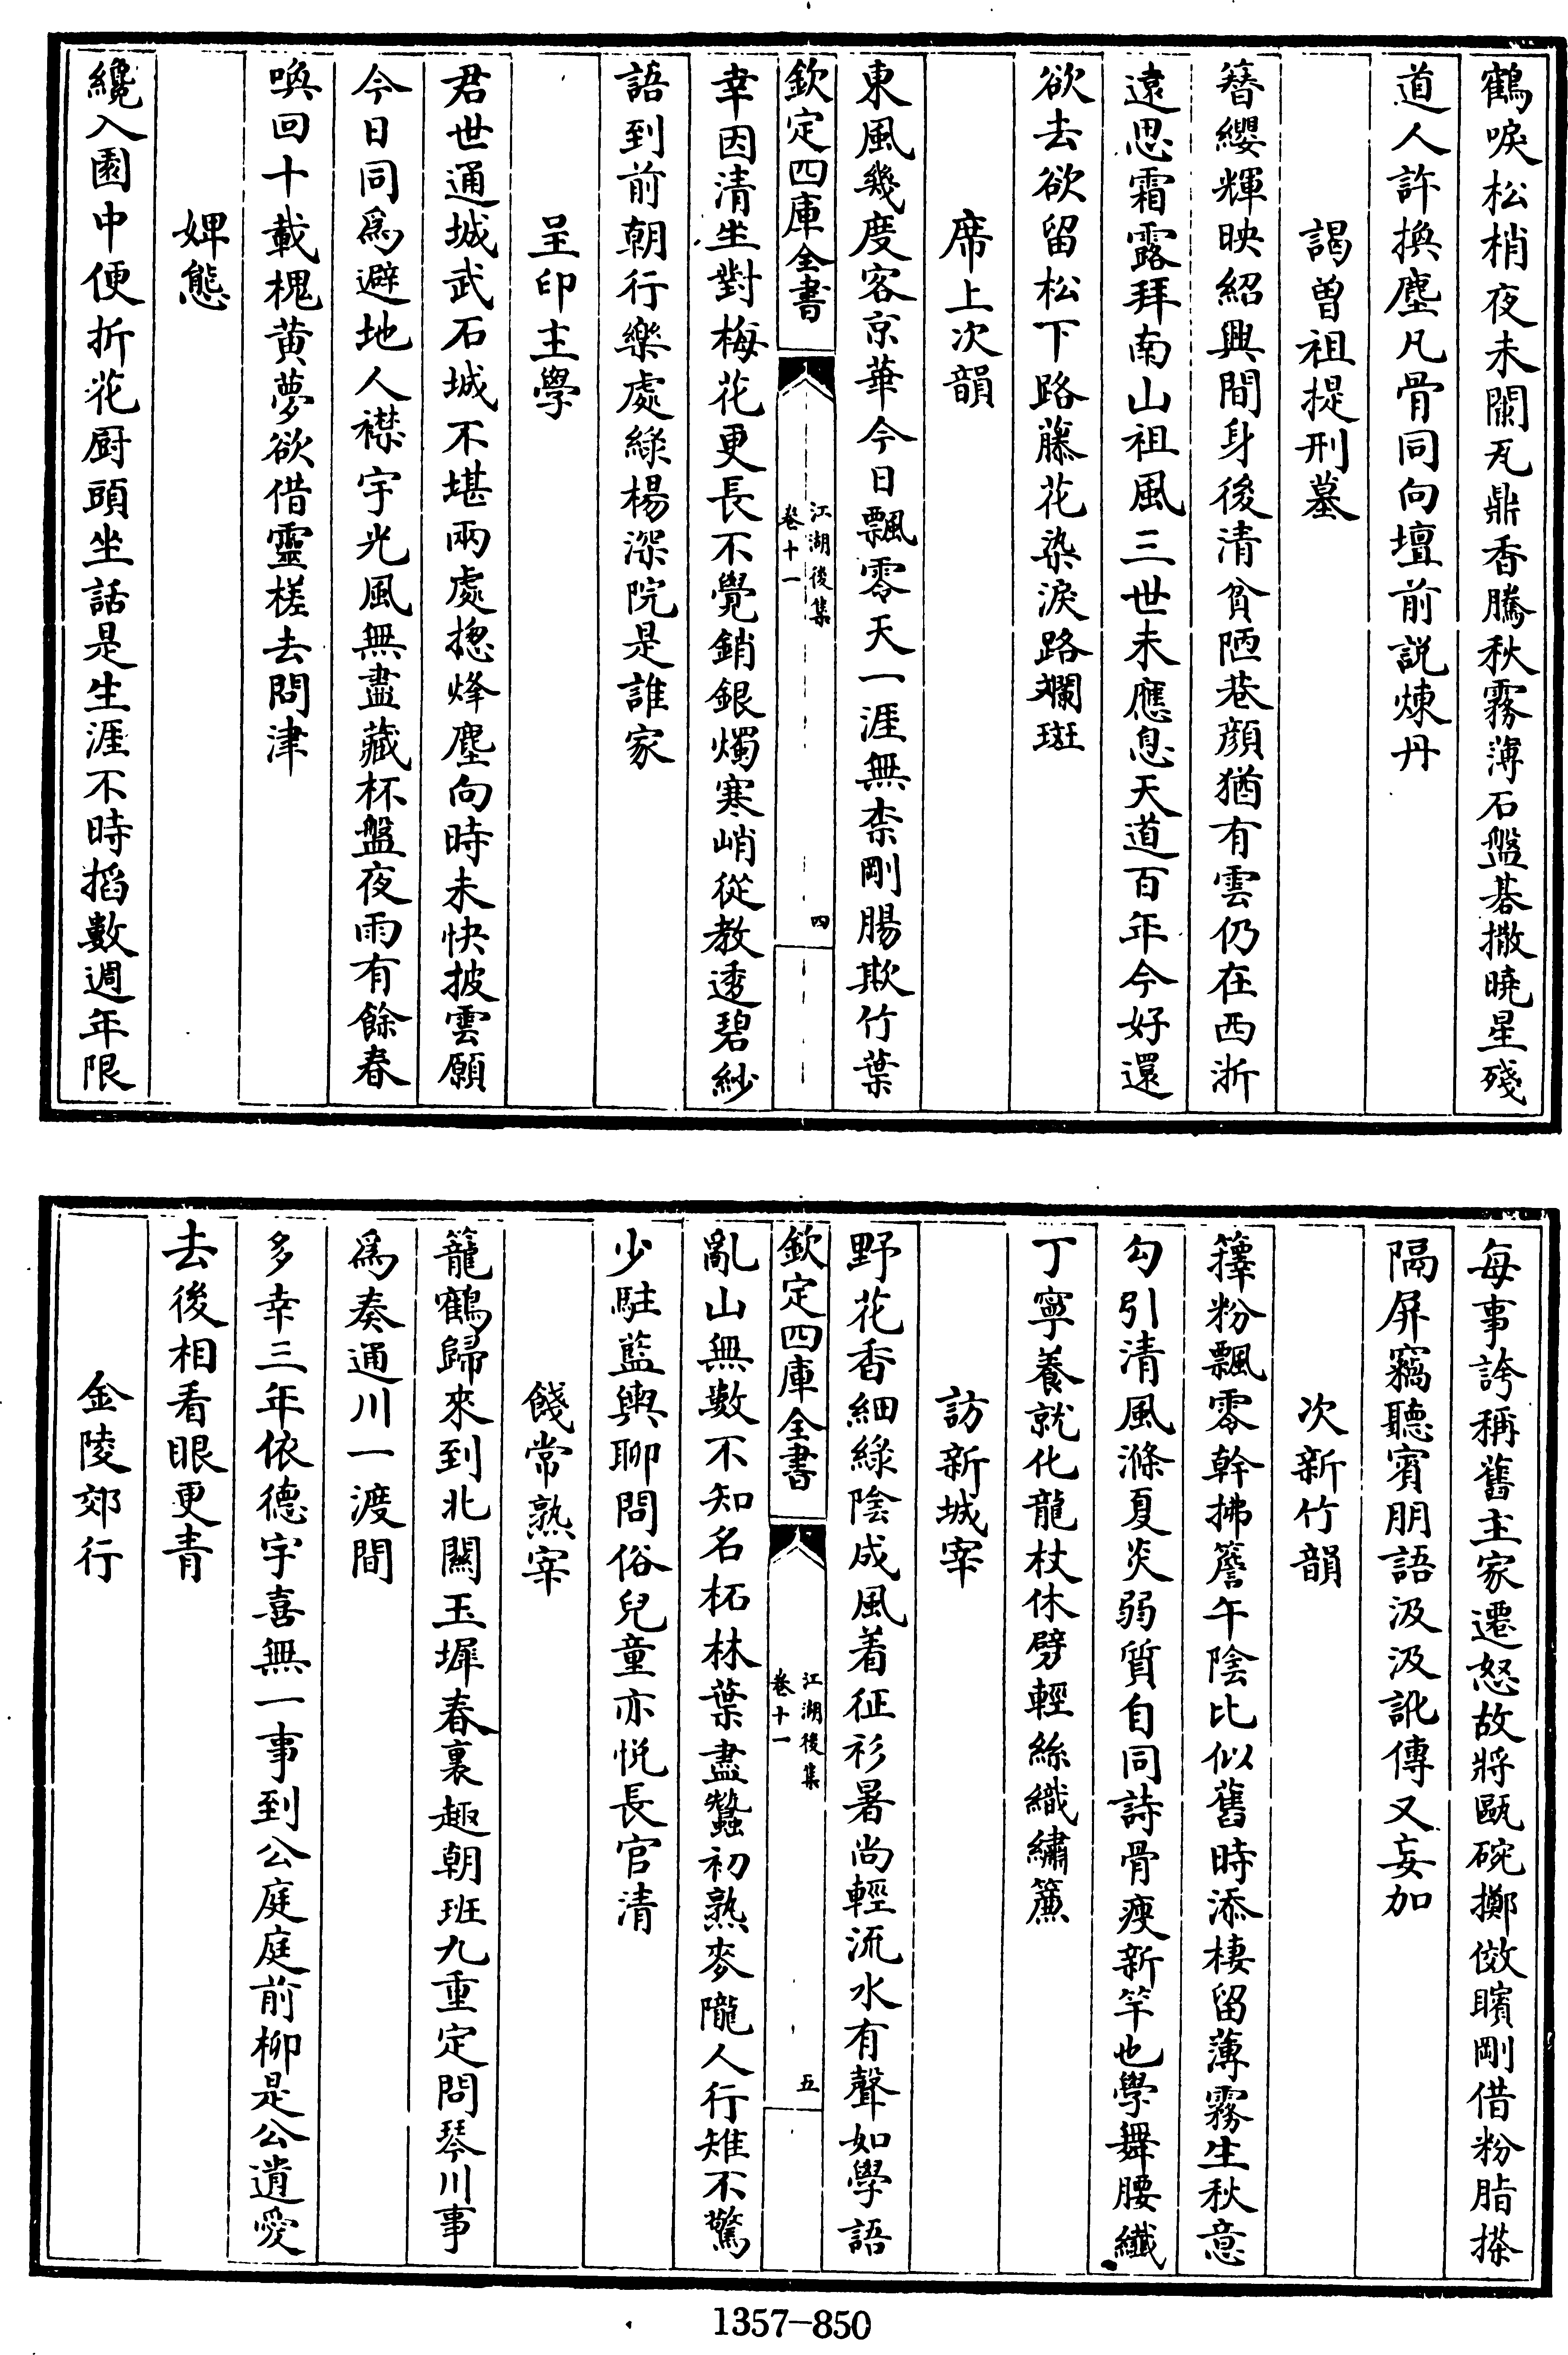 鶴唳松梢夜未闌瓦鼎香騰秋霧薄石盤碁撒曉星殘
道人許換塵凡骨同向壇前説煉丹
謁曾祖提刑墓
簪纓輝映紹興間身後清貧陋巷顔猶有雲仍在西浙
遠思霜露拜南山祖風三世未應息天道百年今好還
欲去欲留松下路藤花染淚路斕斑
席上次韻
東風幾度客京華今日飄零天一涯無柰剛腸欺竹葉
欽定四庫全書
江湖後集
卷十一
四
幸因清坐對梅花更長不覺銷銀燭寒峭從教透碧紗
語到前朝行樂處綠楊深院是誰家
呈印主學
君世通城武石城不堪兩處揔烽塵向時未快披雲願
今日同爲避地人襟宇光風無盡藏杯盤夜雨有餘春
喚回十載槐黄夢欲借靈槎去問津
婢態
纔入園中便折花厨頭坐話是生涯不時搯數週年限
每事誇稱舊主家遷怒故將甌碗擲倣矉剛借粉脂搽
隔屏竊聽賓朋語汲汲訛傳又妄加
次新竹韻
籜粉飄零幹拂簷午陰比似舊時添棲留薄霧生秋意
勾引清風滌夏炎弱質自同詩骨瘐新竿也學舞腰纖
丁寧養就化龍杖休劈輕絲織繡簾
訪新城宰
野花香細綠陰成風着征衫暑尚輕流水有聲如學語
欽定四庫全書
江湖後集
卷十一
五
亂山無數不知名柘林葉盡蠶初熟麥隴人行雉不驚
少駐藍輿聊問俗兒童亦悦長官清
餞常熟宰
籠鶴歸來到北闗玉墀春裏趣朝班九重定問琴川事
爲奏通川一渡間
多幸三年依德宇喜無一事到公庭庭前柳是公遺愛
去後相看眼更青
金陵郊行
1357-850